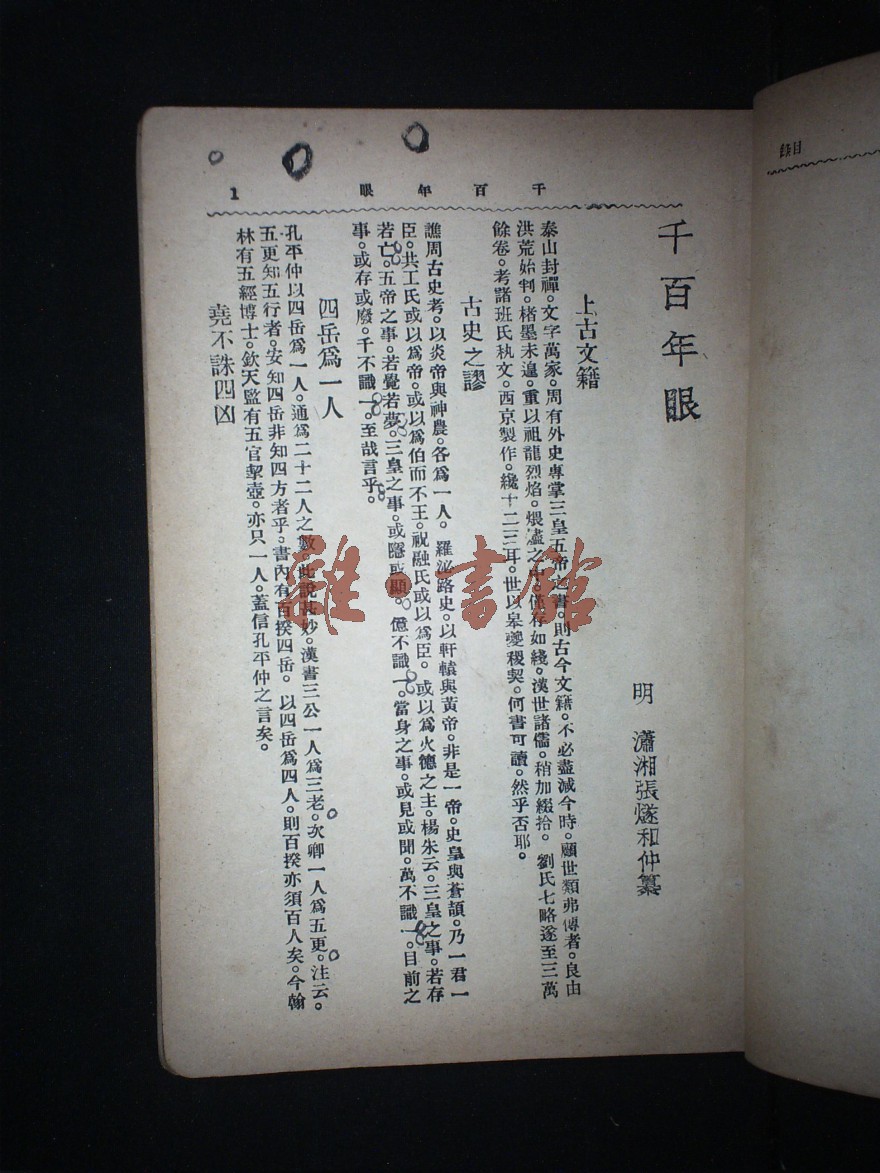 目錄
千百年眼
1
千百年眼
明 瀟湘張燧和仲纂
上古文籍
泰山封禪。文字萬家。周有外史專掌三皇五帝之書。則古今文籍。不必盡減今時。顧世類弗傳者。良由
洪荒始判。楮墨未遑。重以祖龍烈焰。煨燼之中。僅存如綫。漢世諸儒。稍加綴拾。劉氏七略遂至三萬
餘卷。考諸班氏執文。西京製作。纔十二三耳。世以皋夔稷契。何書可讀。然乎否耶。
古史之謬
譙周古史考。以炎帝與神農。各爲一人。羅泌路史。以軒轅與黃帝。非是一帝。史皇與蒼頡。乃一君一
臣。共工氏或以爲帝。或以爲伯而不王。祝融氏或以爲臣。或以爲火德之主。楊朱云。三皇之事。若存
若亡。五帝之事。若覺若夢。三皇之事。或隱或顯。億不識一。當身之事。或見或聞。萬不識一。目前之
事。或存或廢。千不識一。至哉言乎。
四岳爲一人
孔平仲以四岳爲一人。通爲二十二人之數。此說甚妙。漢書三公一人爲三老。次卿一人爲五更。注云。
五更知五行者。安知四岳非知四方者乎。書內有百揆四岳。以四岳爲四人。則百揆亦須百人矣。今翰
林有五經博士。欽天監有五官挈壺。亦只一人。蓋信孔平仲之言矣。
堯不誅四凶
雜·書館